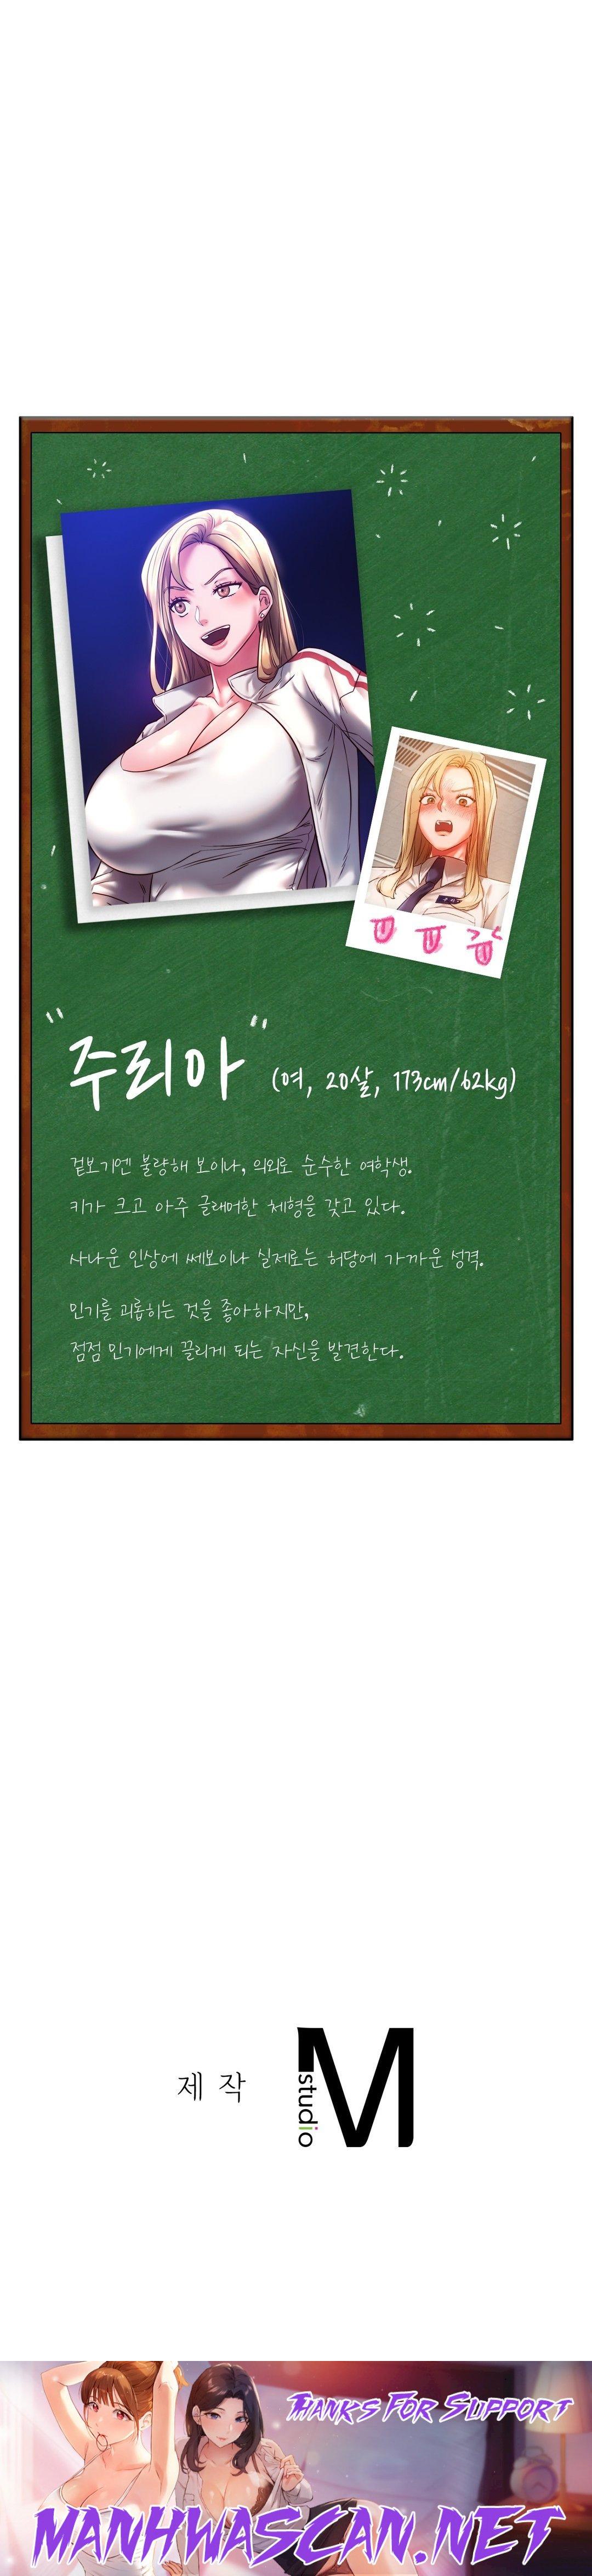 "주리아" (여, 20살, 173cm/62kg)
겉보기엔 불량해 보이나, 의외로 순수한 여학생.
키가 크고 아주 글래머한 체형을 갖고 있다.
사나운 인상에 쎄보이나 실제로는 허당에 가까운 성격.
민기를 괴롭히는 것을 좋아하지만,
점점 민기에게 끌리게 되는 자신을 발견한다.
제 작
M
studio
THANKS FOR SUPPORT
MANHWASCAN.NET